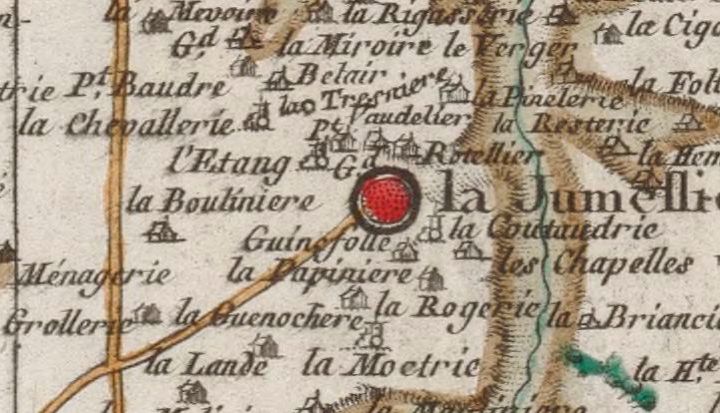 la Mevoirie
la Rigusserie
la Cigo
G.d
la Miroire
le Verger
trie
P.t Baudre
Belair
la Foll
la Tresniere
la Pinelerie
la Chevallerie
P.t Vaudelier
la Resterie
l'Etang
G.d
Rotellier
la Hem
la Boutiniere
la Jumellie
Guinefolle
la Coutaudrie
Ménagerie
la Papiniere
les Chapelles
Grollerie
la Guenochere
la Rogerie
la Brianci
la Lande
la Moetrie
la H.te